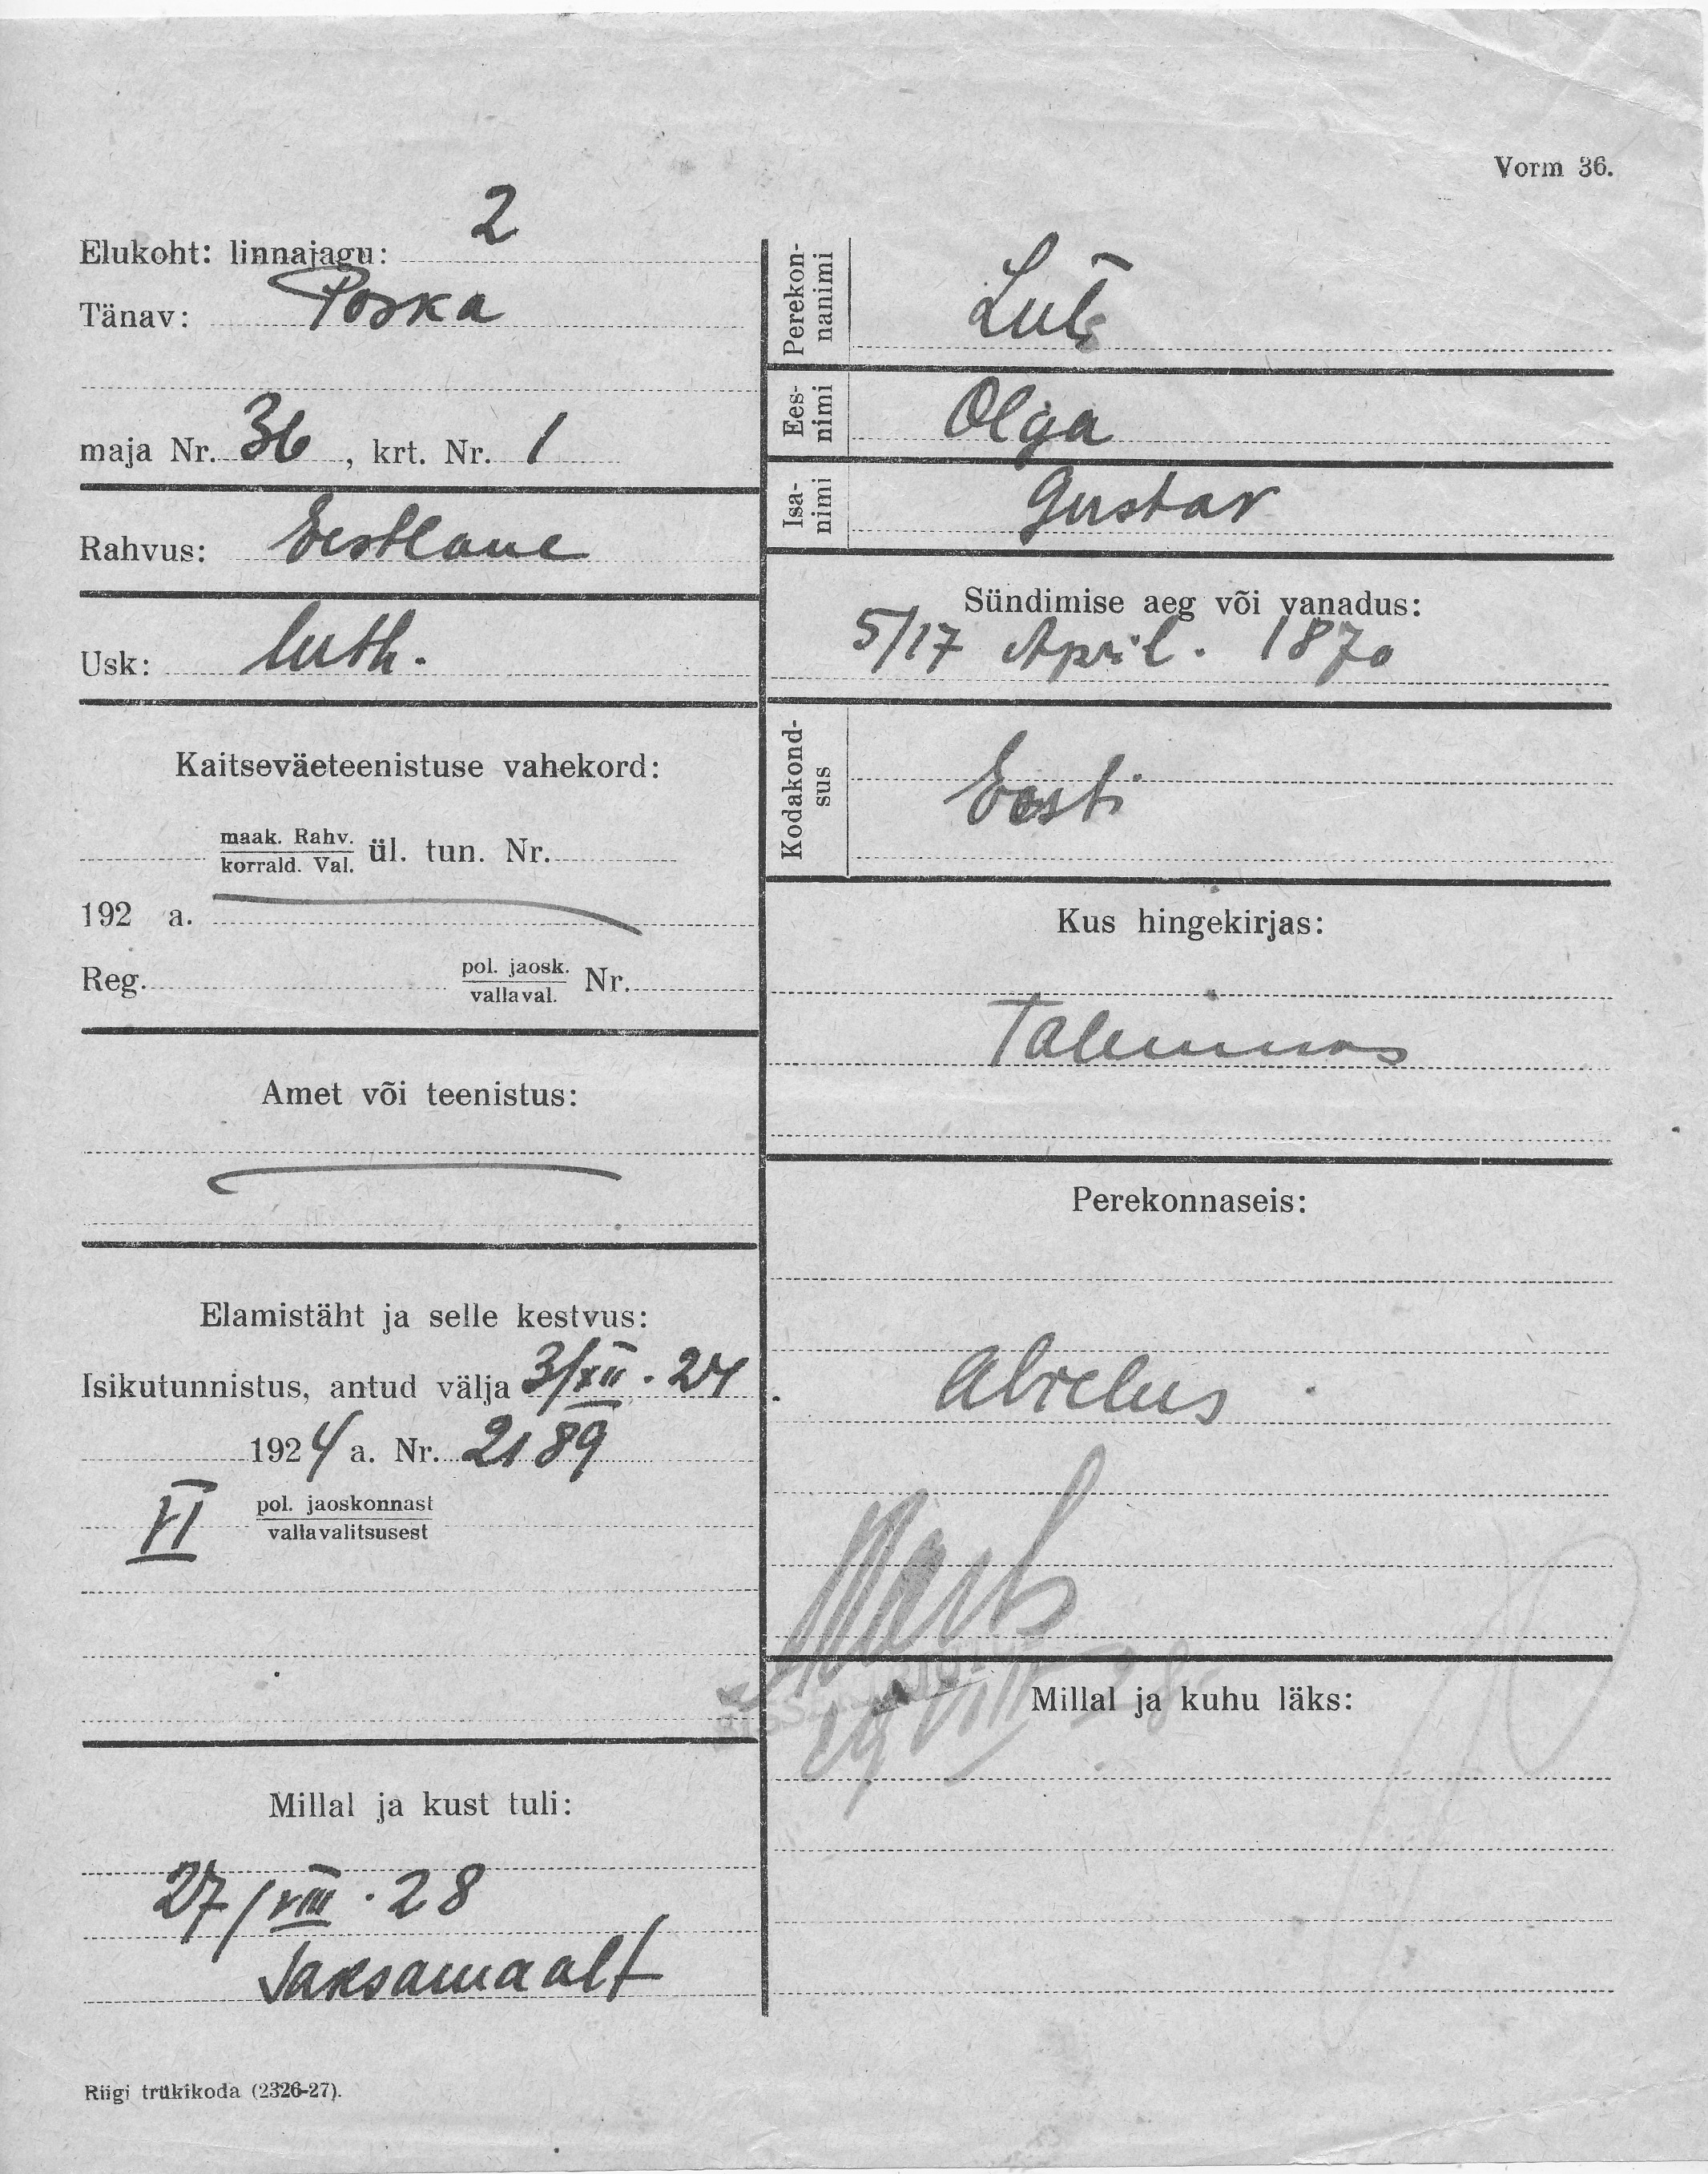 Vorm 36.
Elukoht: linnajagu: 2
Tänav: Poska
maja Nr. 36, krt. Nr. 1
Rahvus: Eestlane
Usk: luth.
Kaitseväeteenistuse vahekord:
maak. Rahv.
korrald. Val. ül. tun. Nr.
192 a.
Reg. pol. jaosk.
vallaval. Nr.
Amet või teenistus:
Elamistäht ja selle kestvus:
Isikutunnistus, antud välja 3/XII. 24
1924 a. Nr. 2189
VI pol. jaoskonnast
vallavalitsusest
Millal ja kust tuli:
27/VIII. 28
Saksamaalt
Riigi trükikoda (2326-27).
Perekonnanimi
Luts
Eesnimi
Olga
Isanimi
Gustav
Sündimise aeg või vanadus:
5/17 April. 1870
Kodakondsus
Eesti
Kus hingekirjas:
Talinnas
Perekonnaseis:
abielus
29 VIII 28
Millal ja kuhu läks: